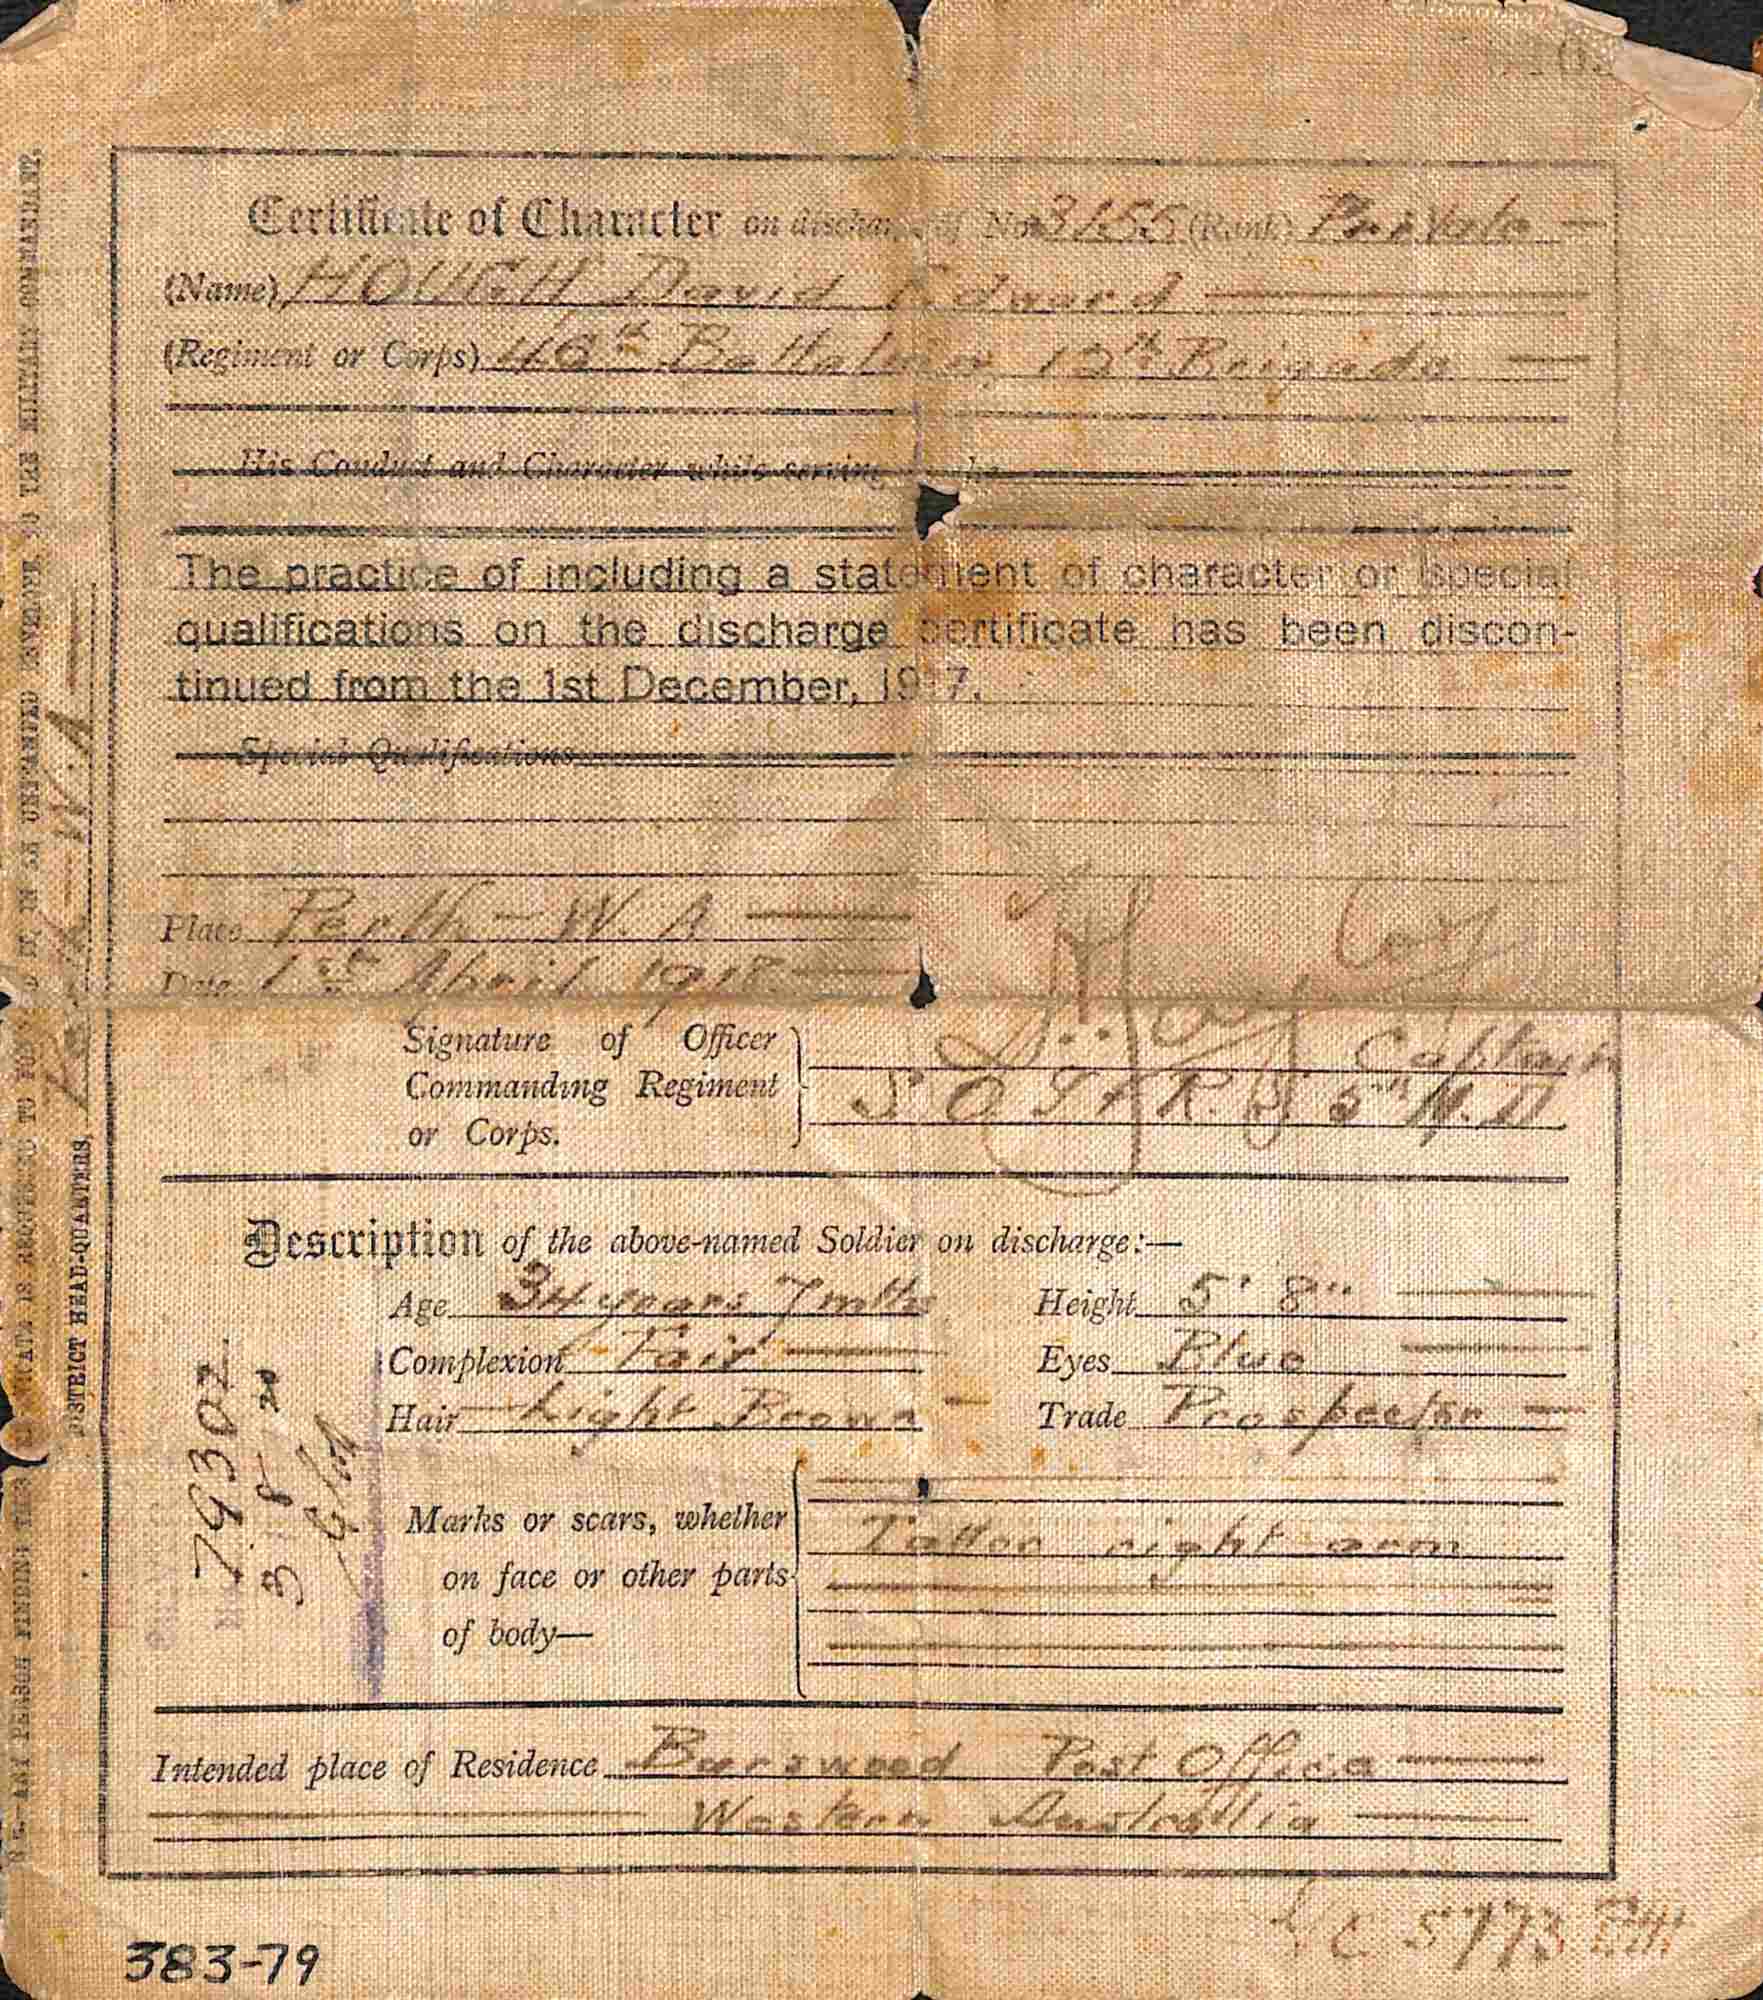 Certificate of Character on discharge of No. 3155 (Rank) Private
(Name) HOUGH David Edward
(Regiment or Corps) 48th Battalion, 12th Brigade
His Conduct and Character while serving the
The practice of including a statement of character or special
qualifications on the discharge certificate has been discon-
tinued from the 1st December, 1917.
Special Qualifications
Place Perth - W. A
Date 1st April 1918
Signature of Officer
Commanding Regiment
or Corps.
Captain
S O I & R. S 5th M. D
Description of the above-named Soldier on discharge:—
Age 34 years 7 mths Height 5' 8"
Complexion Fair Eyes Blue
Hair Light Brown Trade Prospector
Marks or scars, whether
on face or other parts
of body—
Tattoo right arm
Intended place of Residence Burswood Post Office
Western Australia
79302
3 8 20
N.B.—ANY PERSON FINDING THIS CERTIFICATE IS REQUESTED TO FORWARD IT IN AN UNSTAMPED ENVELOPE TO THE MILITARY COMMANDANT,
DISTRICT HEAD-QUARTERS, Perth - W. A
C 5773
383-79